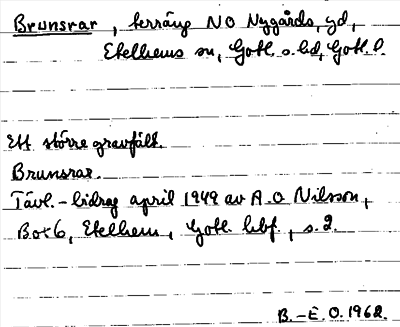 Brunsrar, terräng NO Nygårds, gd,
Etelhems sn, Gotl. s. hd, Gotl. l.
Ett större gravfält.
Brunsrar.
Tävl.-bidrag april 1949 av A.O Nilsson,
Box 6, Etelhem, Gotl. hbf., s. 2.
B.-E. O. 1962.